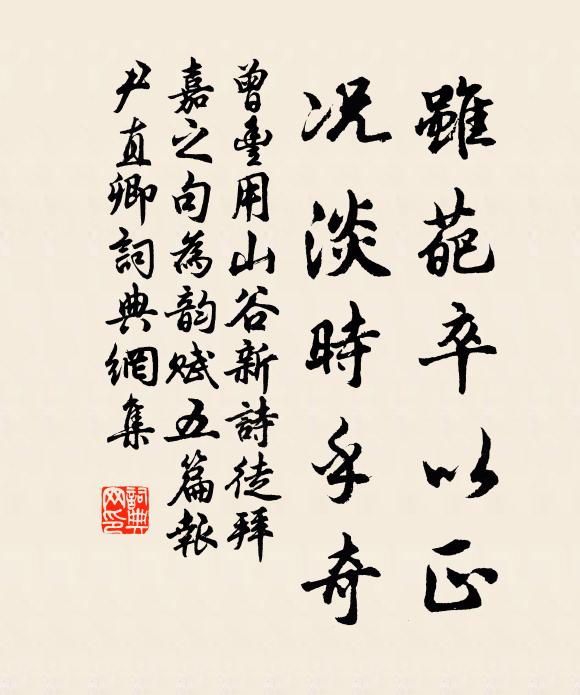 雖葩卒以正
況淡時乎奇
曾豐用山谷新詩徒拜
嘉之句為韵賦五篇報
尹直卿詞典網集
詞典网印